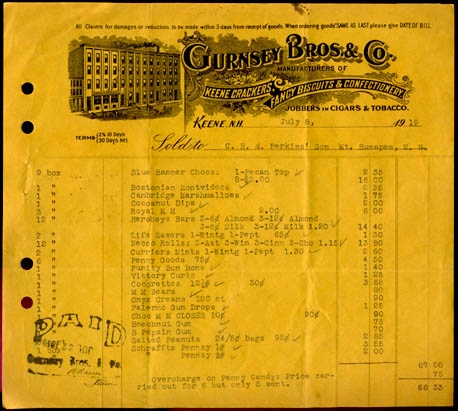 All Claims for damages or reduction to be made within 3 days from receipt of goods. When ordering goods "SAME AS LAST please give DATE OF BILL
GURNSEY BROS. & CO.
MANUFACTURERS OF
KEENE CRACKERS, FANCY BISCUITS & CONFECTIONERY.
JOBBERS IN CIGARS & TOBACCO.
KEENE, N.H. July 8, 1919
TERMS 2% 10 Days
30 Days Net
Sold to C. H. M. Perkins' Son Mt. Sunapee, N. H.
9 box Blue Banner Chocs: 1-Pecan Top 2 35
8-@2.00 16 00
1 " Bostonian Montvideos 2
1 " Cambridge Marshmallows
1 " Cocoanut Dips 2
3 " Royal M M 2.00 6 00
12 " Hersheys Bars 3-6¢ Almond 3-12¢
3-6¢ Milk 3-12¢ Milk 1.20 14 40
2 " Life Savers 1-Wintg 1-Pept 65¢ 1 30
12 " Necco Rolls: 3-Ast 3-Win 3-Cinn 3-Cho 1.15 13 80
2 " Curriers Mints 1-Wintg 1-Pept 1.30 2 60
6 " Penny Goods 75¢ 4 50
1 " Purity Bon Bons 1 40
1 " Victory Curls 1 25
Cocorettes 30¢ 3 68
M M Bears 80
Onyx Creams 120 ct 90
Palermo Gum Drops 1 25
Choc M M CLOSES 10¢ 90¢ 90
Beechnut Gum 75
B Pepsin Gum 70
Salted Peanuts 24/5¢ bags 95¢ 2 85
Schraffts Penney 3 55
" Penney 2 00
87 08
Overcharge on Penny Candy: Price car- 75
ried out for 6 but only 5 sent. 86 33
PAID
Gurnsey Bros. &